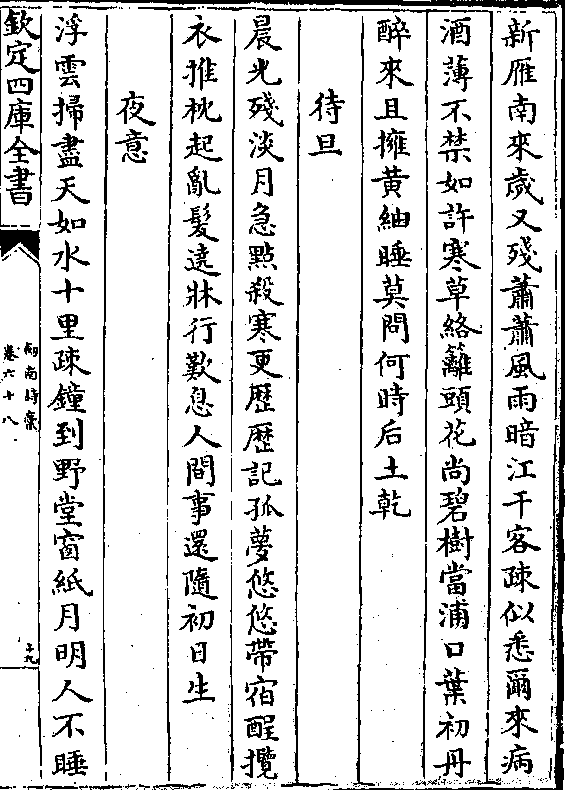 新雁南來歲又殘蕭蕭風雨暗江干客疎似悉爾來病
酒薄不禁如許寒草絡籬頭花尚碧樹當浦口葉初丹
醉來且擁黃紬睡莫問何時后土乾
待旦
晨光殘淡月急㸃殺寒更歷歷記孤夢悠悠帶宿酲攬
衣推枕起亂髮遶牀行歎息人間事還隨初日生
夜意
浮雲掃盡天如水十里疎鐘到野堂窗紙月明人不睡
欽定四庫全書
劒南詩稾
卷六十八
十九